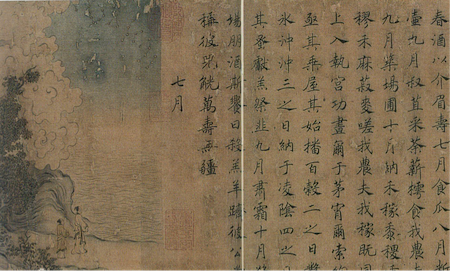 春酒以介眉壽七月食瓜八月斷
壺九月叔苴采荼薪樗食我農
九月築場圃十月納禾稼黍稷
穋禾麻菽麥嗟我農夫我稼既同
上入執宮功晝爾于茅宵爾索
亟其乘屋其始播百穀二之日
冰沖沖三之日納于凌陰四之
其蚤獻羔祭韭九月肅霜十月
場朋酒斯饗曰殺羔羊躋彼公
稱彼兕觥萬壽無疆
七月